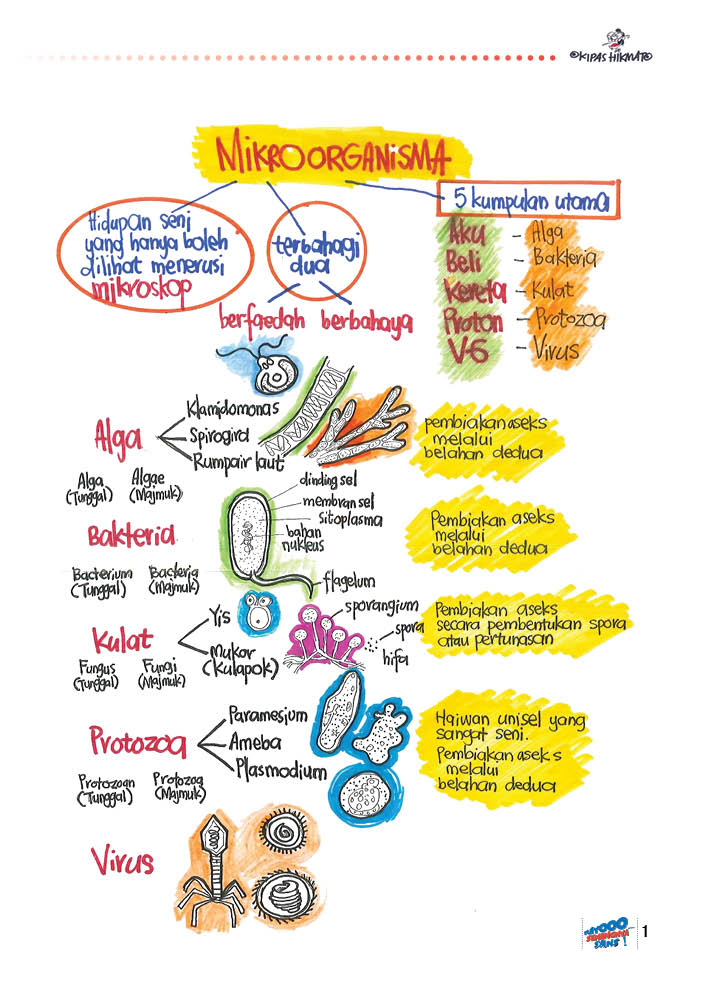 ©KIPAS HIKMAT©
MIKROORGANISMA
Hidupan seni
yang hanya boleh
dilihat menerusi
mikroskop
terbahagi
dua
berfaedah berbahaya
5 kumpulan utama
Aku – Alga
Beli – Bakteria
Kereta – Kulat
Proton – Protozoa
V-6 – Virus
Alga
Klamidomonas
Spirogira
Rumpair laut
Alga Algae
(Tunggal) (Majmuk)
pembiakan aseks
melalui
belahan dedua
Bakteria
dinding sel
membran sel
sitoplasma
bahan
nukleus
flagelum
Bacterium Bacteria
(Tunggal) (Majmuk)
Pembiakan aseks
melalui
belahan dedua
Kulat
Yis
Mukor
(Kulapok)
sporangium
spora
hifa
Fungus Fungi
(Tunggal) (Majmuk)
Pembiakan aseks
secara pembentukan spora
atau pertunasan
Protozoa
Paramesium
Ameba
Plasmodium
Protozoan Protozoa
(Tunggal) (Majmuk)
Haiwan unisel yang
sangat seni.
Pembiakan aseks
melalui
belahan dedua
Virus
SAINS!
1